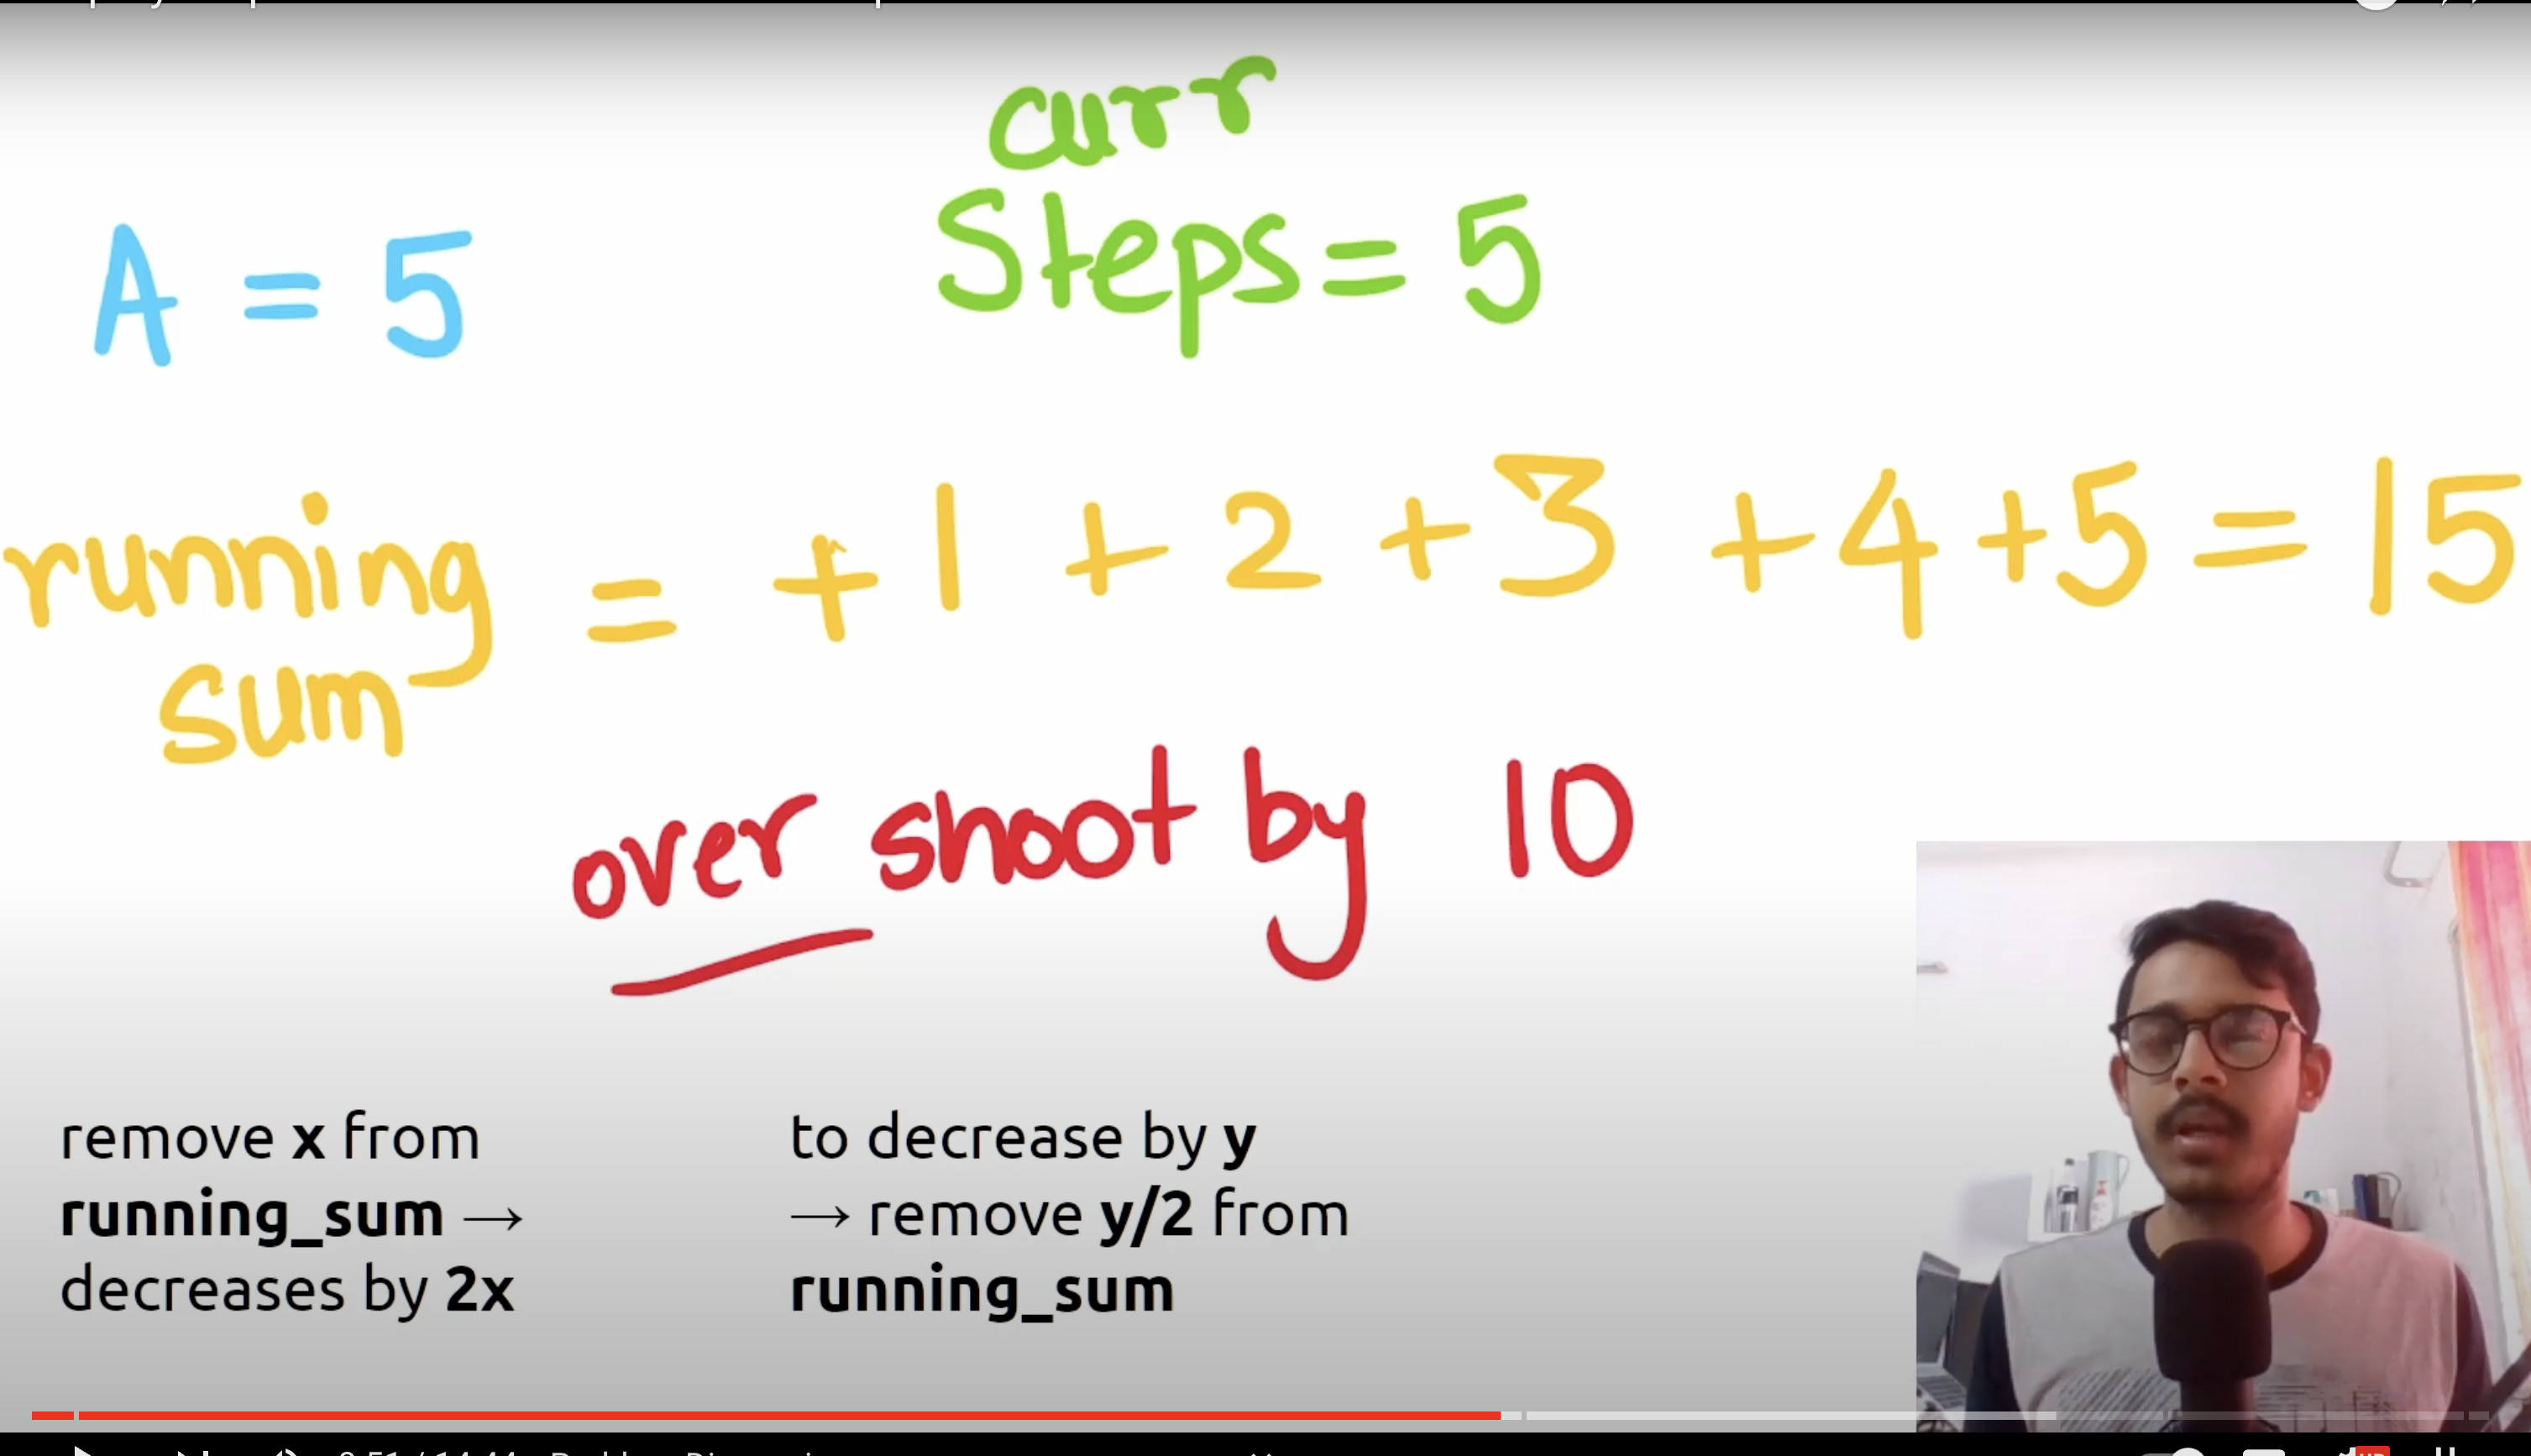 curr
Steps = 5
A = 5
running sum = +1 + 2 + 3 + 4 + 5 = 15
over shoot by 10
remove x from
running_sum →
decreases by 2x
to decrease by y
→ remove y/2 from
running_sum